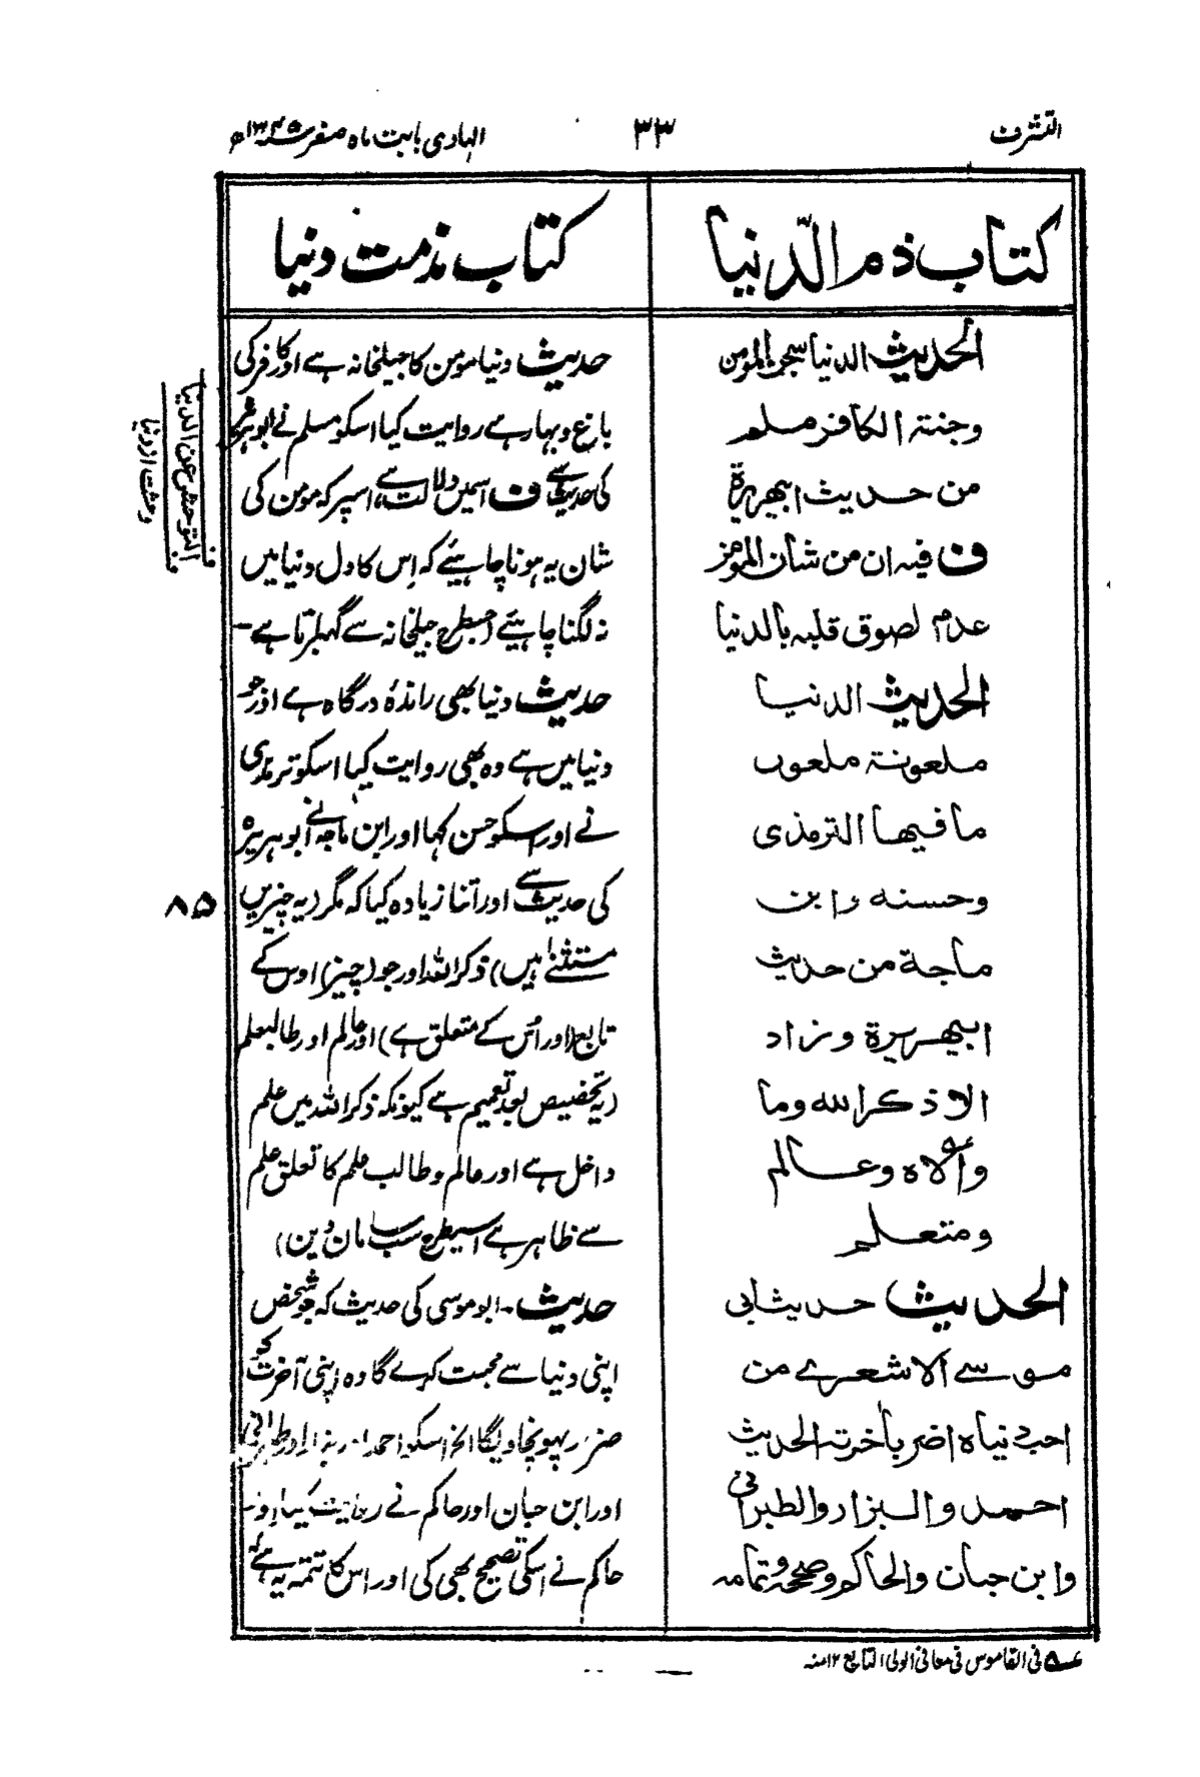 التشرف
۳۳
الہادی بابت ماہ صفر ۱۳۴۵ھ
کتاب ذم الدّنیا
الحدیث الدنیا سجن المومن
وجنتہ الکافر مسلم
من حدیث ابیھریرۃ
ف فیہ ان من شان المومن
عدم لصوق قلبہ بالدنیا
الحدیث الدنیا
ملعونۃ ملعون
ما فیھا الترمذی
وحسنہ وابن
ماجۃ من حدیث
ابیھریرۃ وزاد
الا ذکر اللہ وما
والاہ وعالم
ومتعلم
الحدیث حدیث ابی
موسے الاشعرے من
احب دنیاہ اضر بآخرتہ الحدیث
احمد والبزار والطبرانی
وابن حبان والحاکم وصححہ وتمامہ
کتاب مذمت دنیا
حدیث دنیا مومن کا جیلخانہ ہے اور کافر کی
باغ و بہار ہے روایت کیا اسکو مسلم نے ابوہریرہ
کی حدیث سے ف اسمیں دلالت ہے اسپر کہ مومن کی
شان یہ ہونا چاہیئے کہ اِس کا دل دنیا میں
نہ لگنا چاہیئے (جسطرح جیلخانہ سے گھبراتا ہے۔
حدیث دنیا بھی راندۂ درگاہ ہے اور جو
دنیا میں ہے وہ بھی روایت کیا اسکو ترمذی
نے اور اسکو حسن کہا اور ابن ماجہ نے ابوہریرہ
کی حدیث سے اور اتنا زیادہ کیا کہ مگر (یہ چیزیں
مستثنےٰ ہیں) ذکر اللہ اور جو (چیز) اوس کے
تابع (اور اُس کے متعلق ہے) اور عالم اور طالبعلم
(یہ تخصیص بعد تعمیم ہے کیونکہ ذکر اللہ میں علم
داخل ہے اور عالم و طالب علم کا تعلق علم
سے ظاہر ہے اسیطرح سب سامان دین)
حدیث۔ ابو موسی کی حدیث کہ جو شخص
اپنی دنیا سے محبت کرے گا وہ اپنی آخرت کو
ضرر پہونچاویگا الخ اسکو احمد اور بزار اور طبرانی
اور ابن حبان اور حاکم نے روایت کیا اور
حاکم نے اسکی تصحیح بھی کی اور اس کا تتمہ یہ ہے کہ
التوحش عن الدنیا
وحشت از دنیا
۸۵
عـہ فی القاموس فی معانی الولی التابع ۱۲ منہ